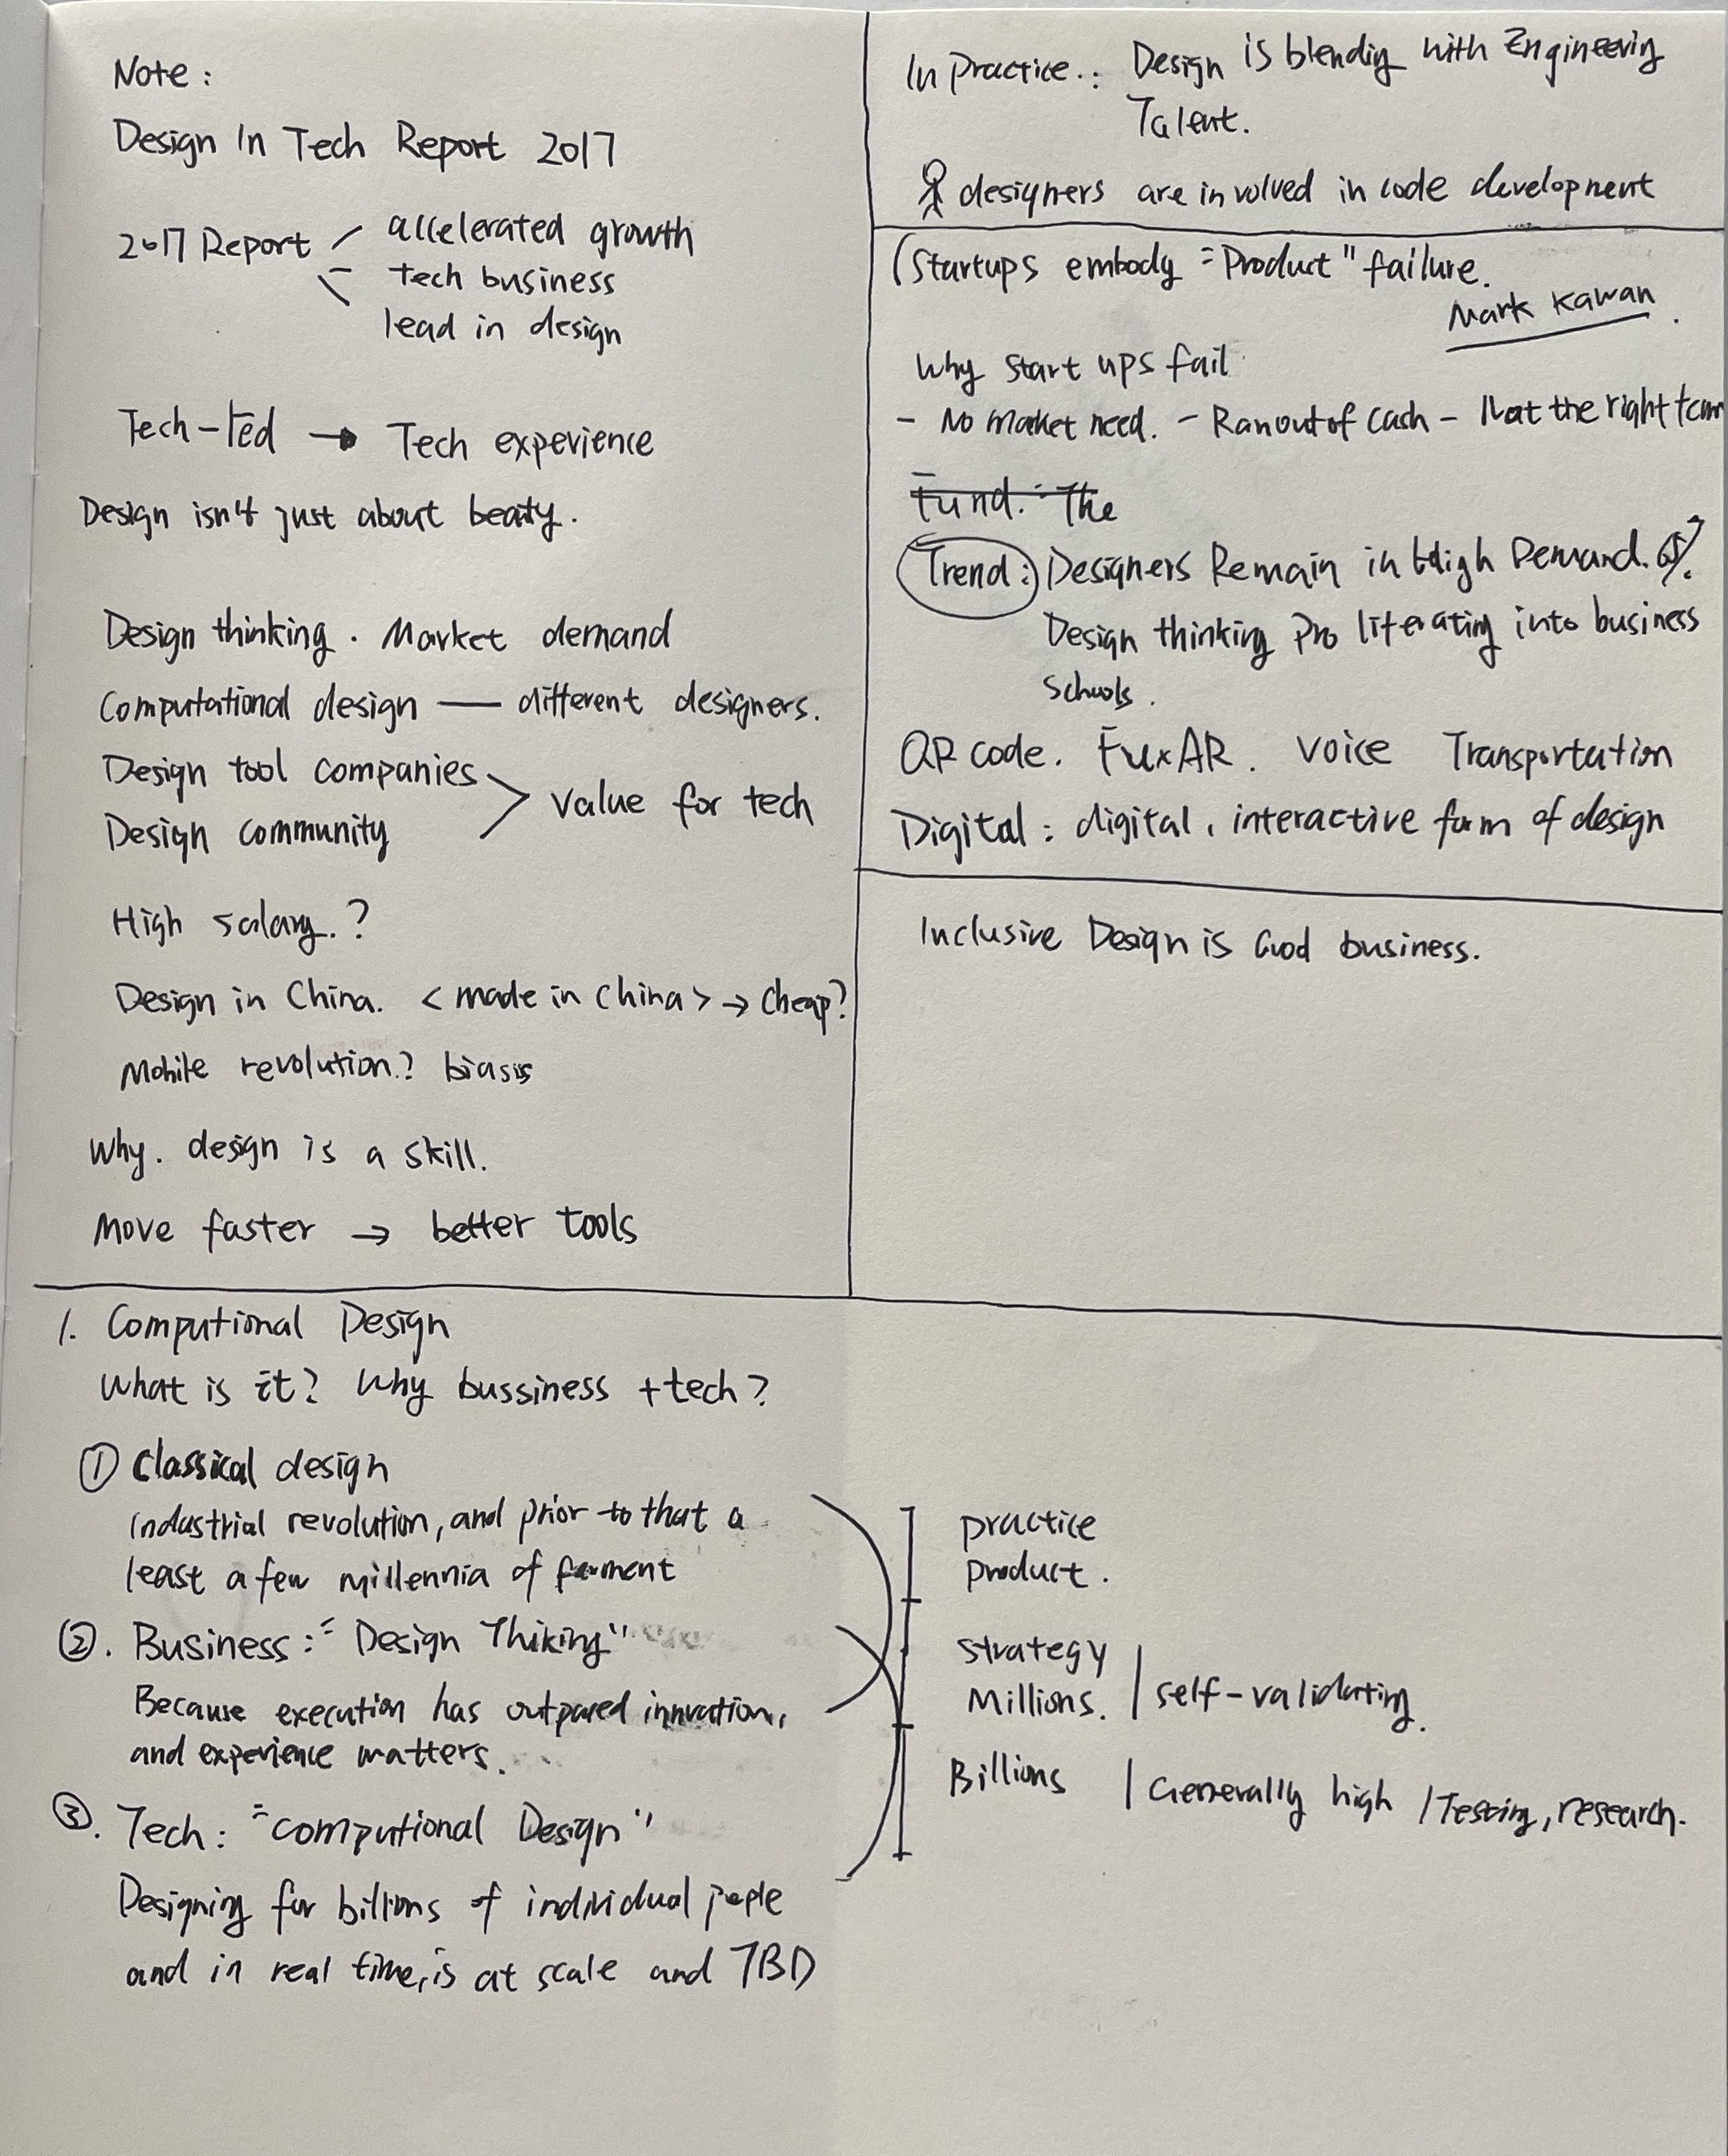 Note :
Design In Tech Report 2017
2017 Report
accelerated growth
tech business
lead in design
Tech-led → Tech experience
Design isn't just about beaity.
Design thinking . Market demand
Computational design — different designers.
Design tool companies
Design community
value for tech
High salary. ?
Design in China. <made in china> → cheap?
Mobile revolution.? biasis
Why. design is a skill.
Move faster → better tools
In Practice.: Design is blendig with Engineerig
Talent.
designers are involved in code development
(Startups embody "Product" failure.
Mark Kawan.
Why start ups fail
- No market need. - Ran out of cash - Not the right team
Fund: The
Trend: Designers Remain in High Demand.
Design thinking pro literating into business
schools.
QR code. AR. Voice Transportation
Digital : digital, interactive form of design
Inclusive Design is Good business.
1. Computional Design
What is it? Why bussiness +tech?
① Classical design
industrial revolution, and prior to that a
least a few millennia of ferment
②. Business: "Design Thiking"
Because execution has outpaced innvation,
and experience matters.
③. Tech: "computional Design"
Designing for billions of individual people
and in real time, is at scale and TBD
practice
product.
strategy
Millions. | self-validating.
Billions | Generally high / Testing, research.